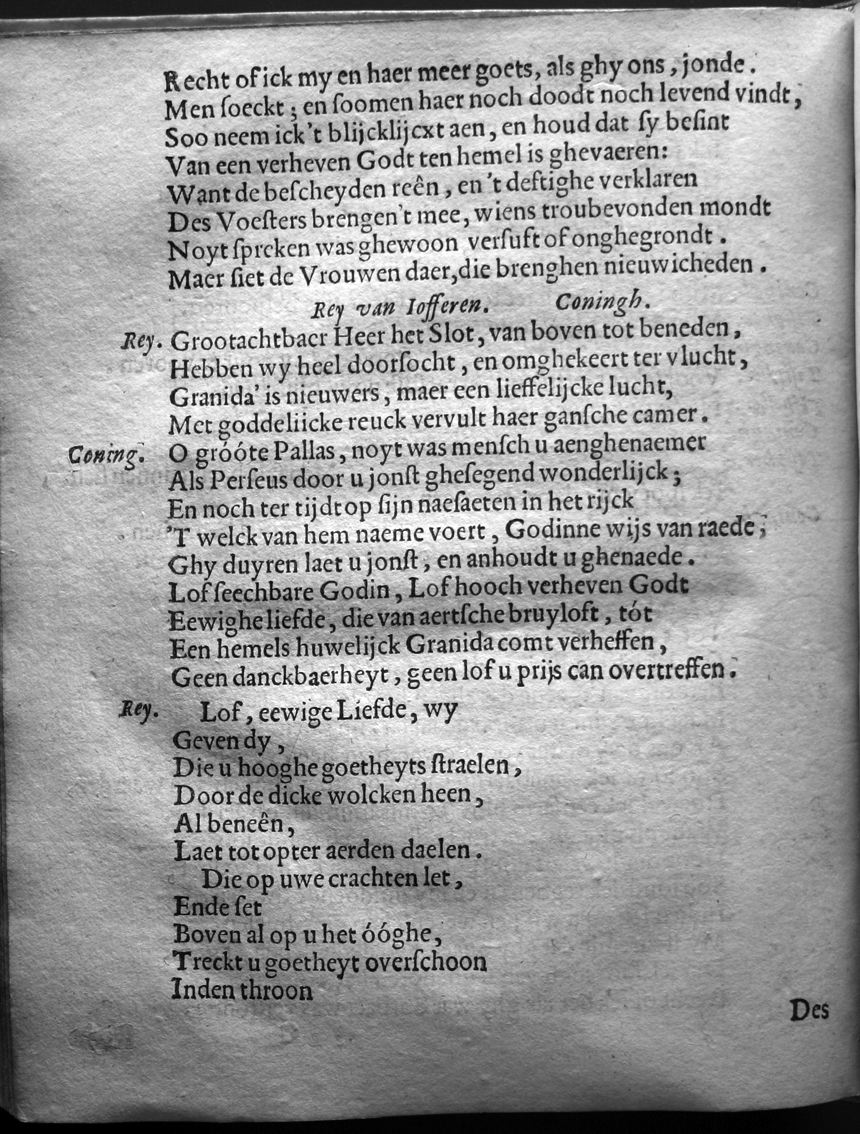 Recht of ick my en haer meer goets, als ghy ons, jonde.
Men ſoeckt; en ſoomen haer noch doodt noch levend vindt,
Soo neem ick't blijcklijcxt aen, en houd dat ſy beſint
Van een verheven Godt ten hemel is ghevaeren:
Want de beſcheyden reên, en 't deftighe verklaren
Des Voeſters brengen't mee, wiens troubevonden mondt
Noyt ſprcken was ghewoon verſuft of onghegrondt.
Maer ſiet de Vrouwen daer, die brenghen nieuwicheden.
Rey van Iofferen. Coningh.
Rey. Grootachtbaer Heer het Slot, van boven tot beneden,
Hebben wy heel doorſocht, en omghekeert ter vlucht,
Granida' is nieuwers, maer een lieffelijcke lucht,
Met goddeliicke reuck vervult haer ganſche camer.
Coning. O gróóte Pallas, noyt was menſch u aenghenaemer
Als Perſeus door u jonſt gheſegend wonderlijck;
En noch ter tijdt op ſijn naeſaeten in het rijck
'T welck van hem naeme voert, Godinne wijs van raede,
Ghy duyren laet u jonſt, en anhoudt u ghenaede.
Lof ſeechbare Godin, Lof hooch verheven Godt
Eewighe liefde, die van aertſche bruyloft, tót
Een hemels huwelijck Granida comt verheffen,
Geen danckbaerheyt, geen lof u prijs can overtreffen.
Rey. Lof, eewige Liefde, wy
Geven dy,
Die u hooghe goetheyts ſtraelen,
Door de dicke wolcken heen,
Al beneên,
Laet tot opter aerden daelen.
Die op uwe crachten let,
Ende ſet
Boven al op u het óóghe,
Treckt u goetheyt overſchoon
Inden throon
Des